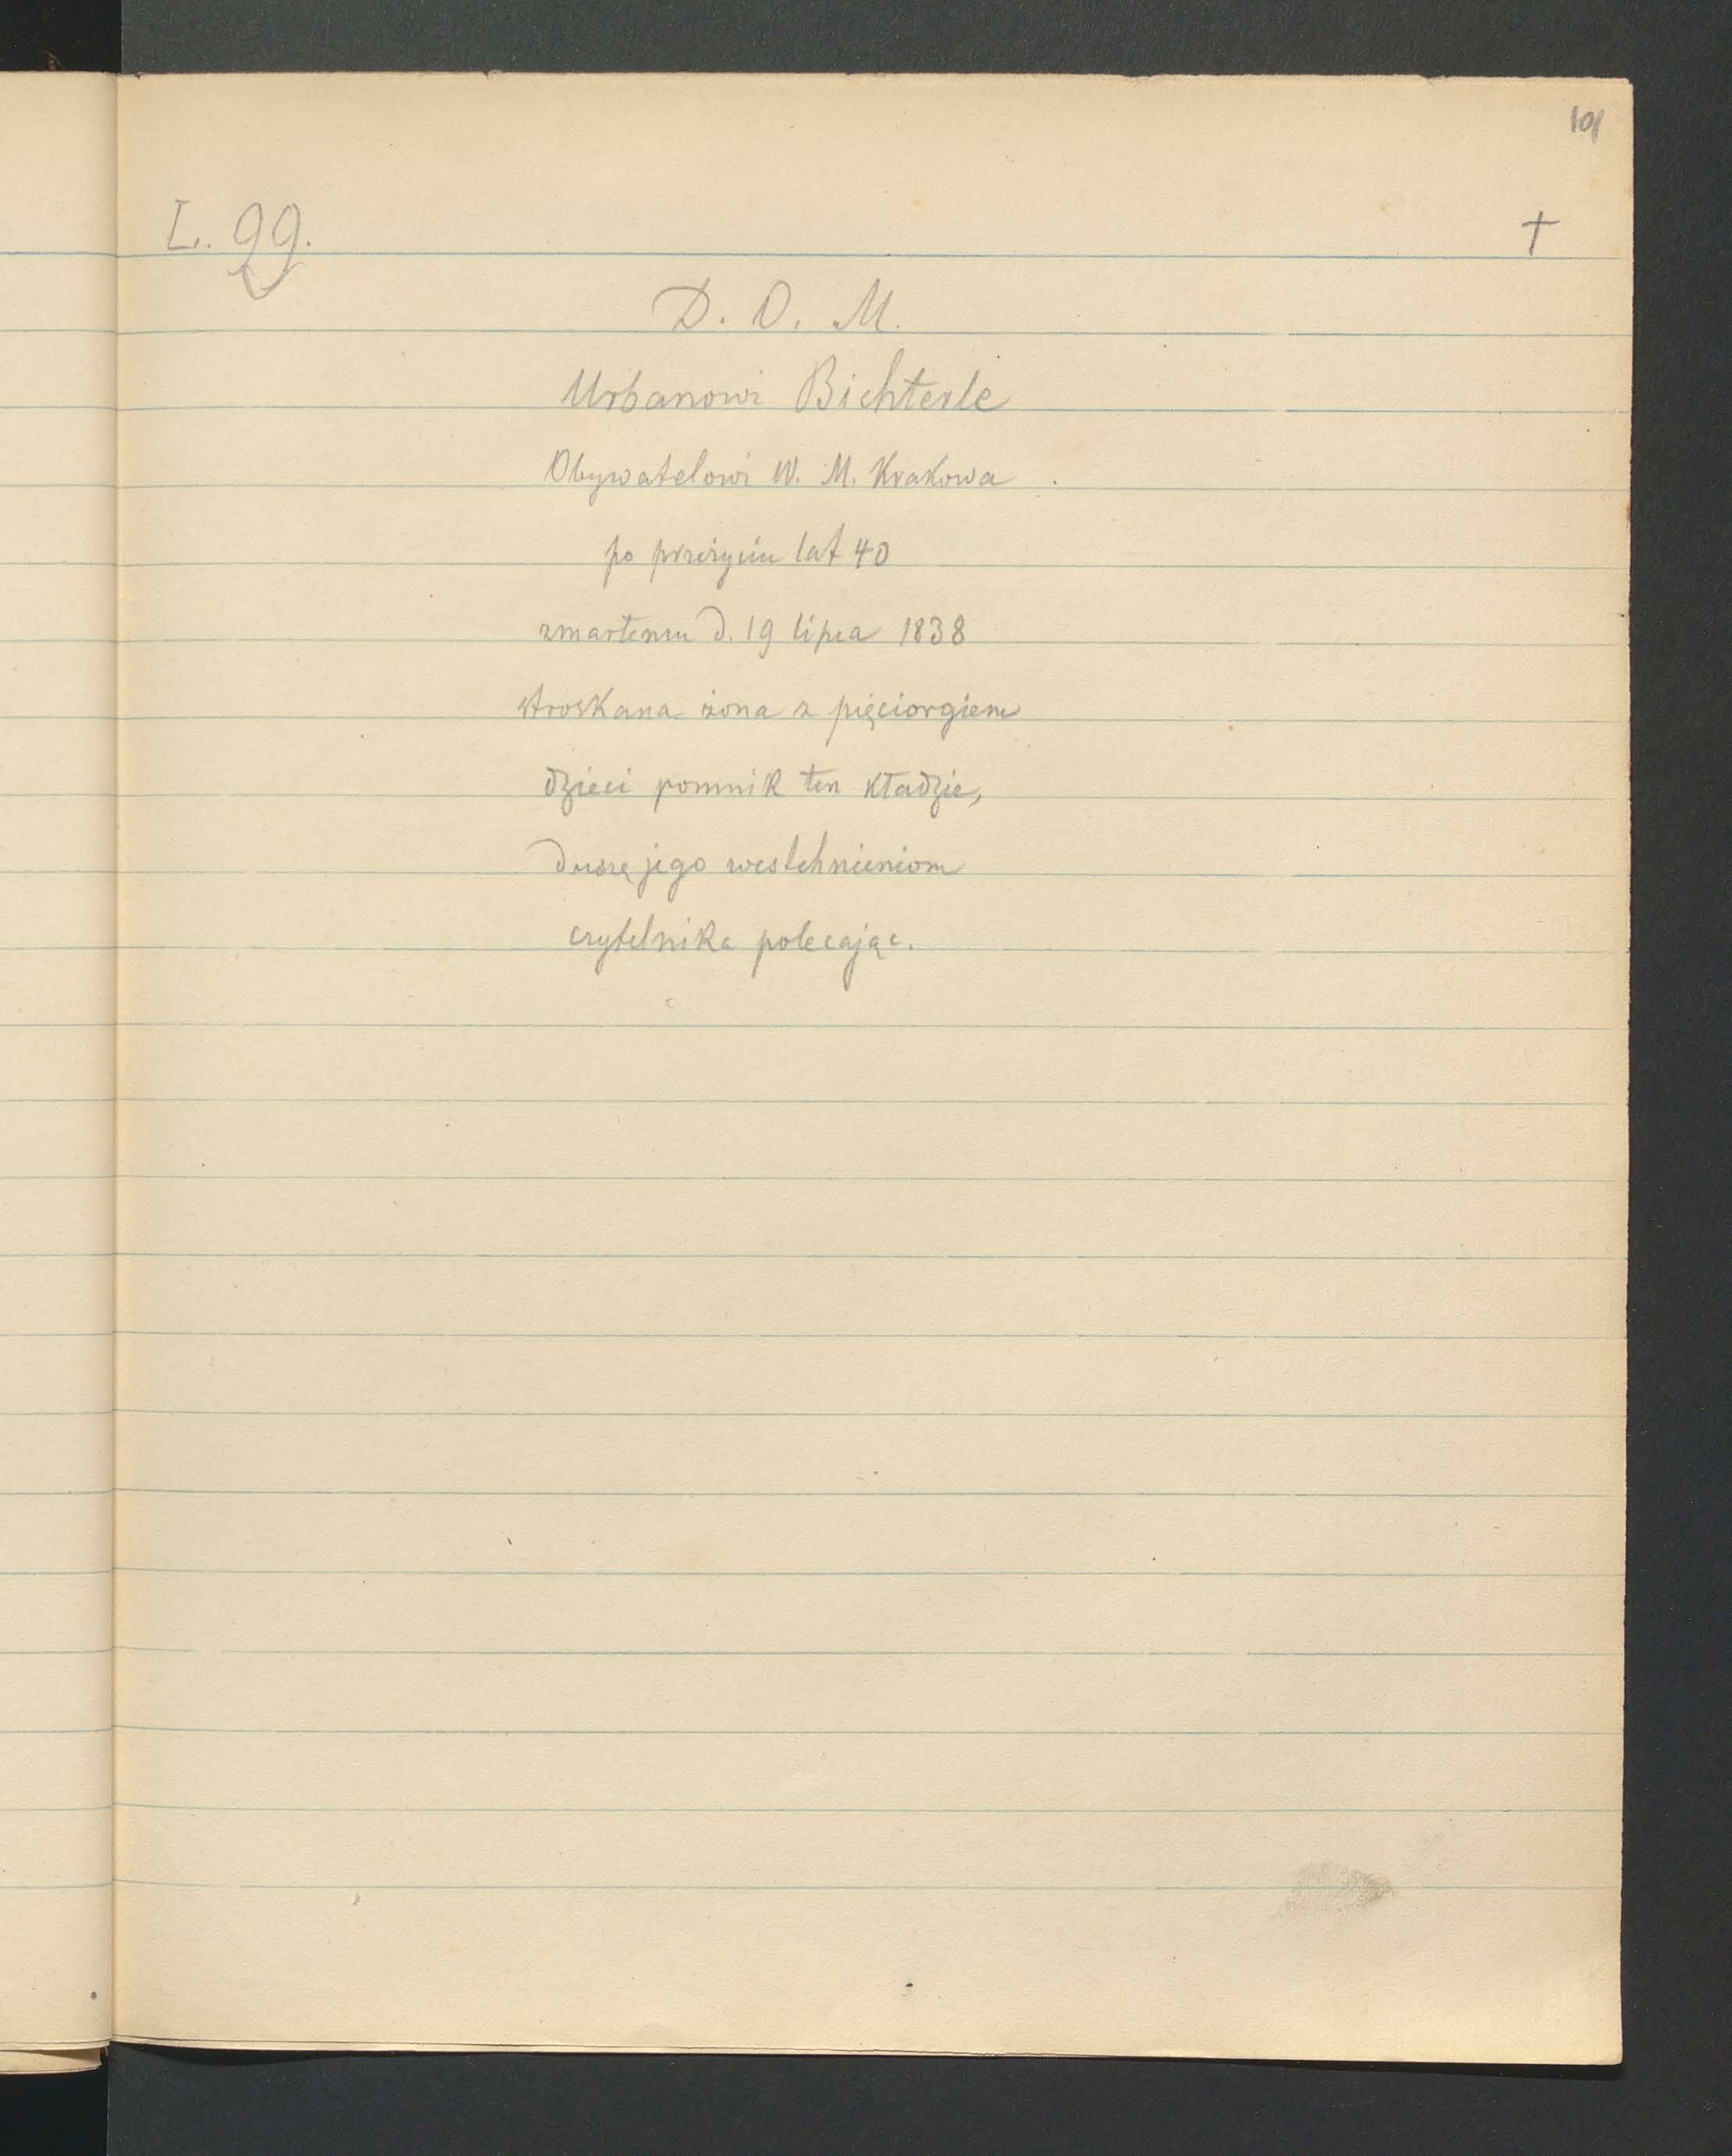 101
L. 99. †
D. O. M.
Urbanowi Bichterle
Obywatelowi W. M. Krakowa
po przeżyciu lat 40
zmarłemu d. 19 lipca 1838
stroskana żona z pięciorgiem
dzieci pomnik ten kładzie,
duszę jego westchnieniom
czytelnika polecając.